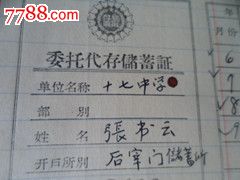 7788.com
委托代存儲蓄証
单位名称 十七中学
部 别
姓 名 張书云
开户所别 后宰门儲蓄所
年
月份
6
7
8
9